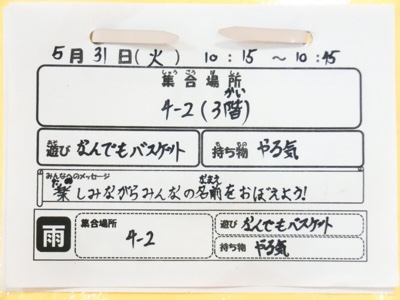 5月31日(火) 10:15～10:45
集合場所
4-2(3階)
遊び なんでもバスケット 持ち物 やる気
みんなへのメッセージ
楽しみながらみんなの名前をおぼえよう!
雨 集合場所 4-2
遊び なんでもバスケット
持ち物 やる気